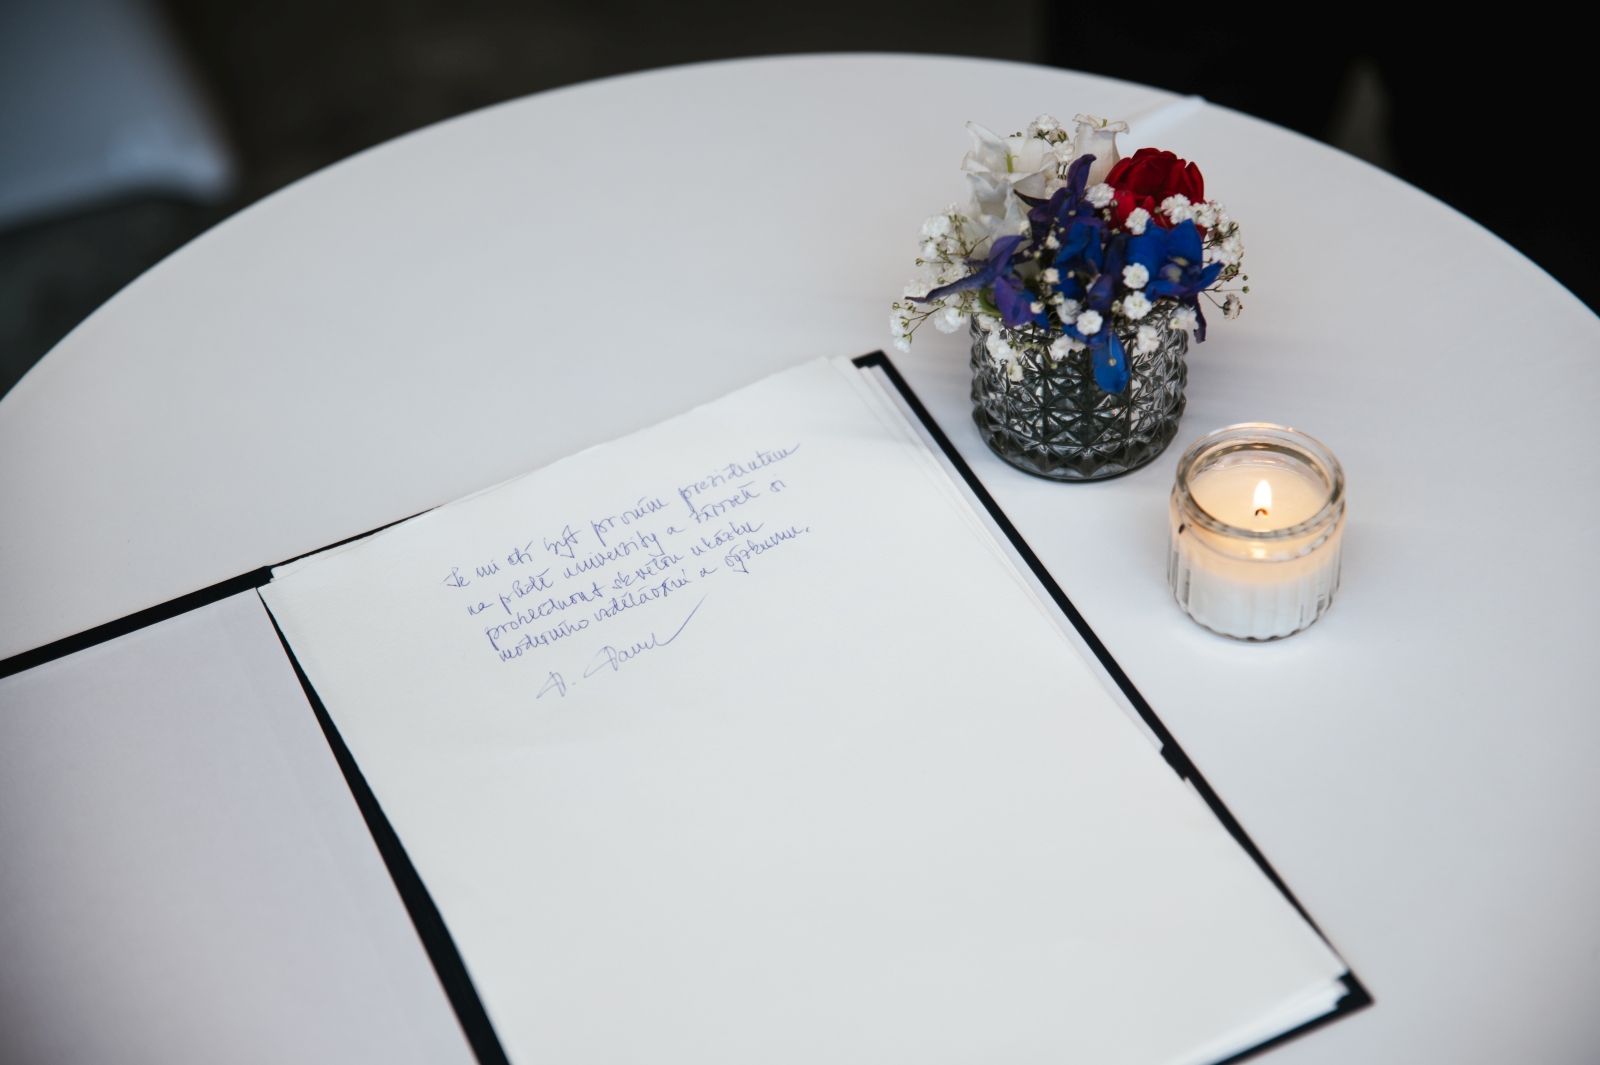 Je mi ctí být prvním prezidentem
na půdě univerzity a zároveň si
prohlédnout skvělou ukázku
moderního vzdělávání a výzkumu.
P. Pavel